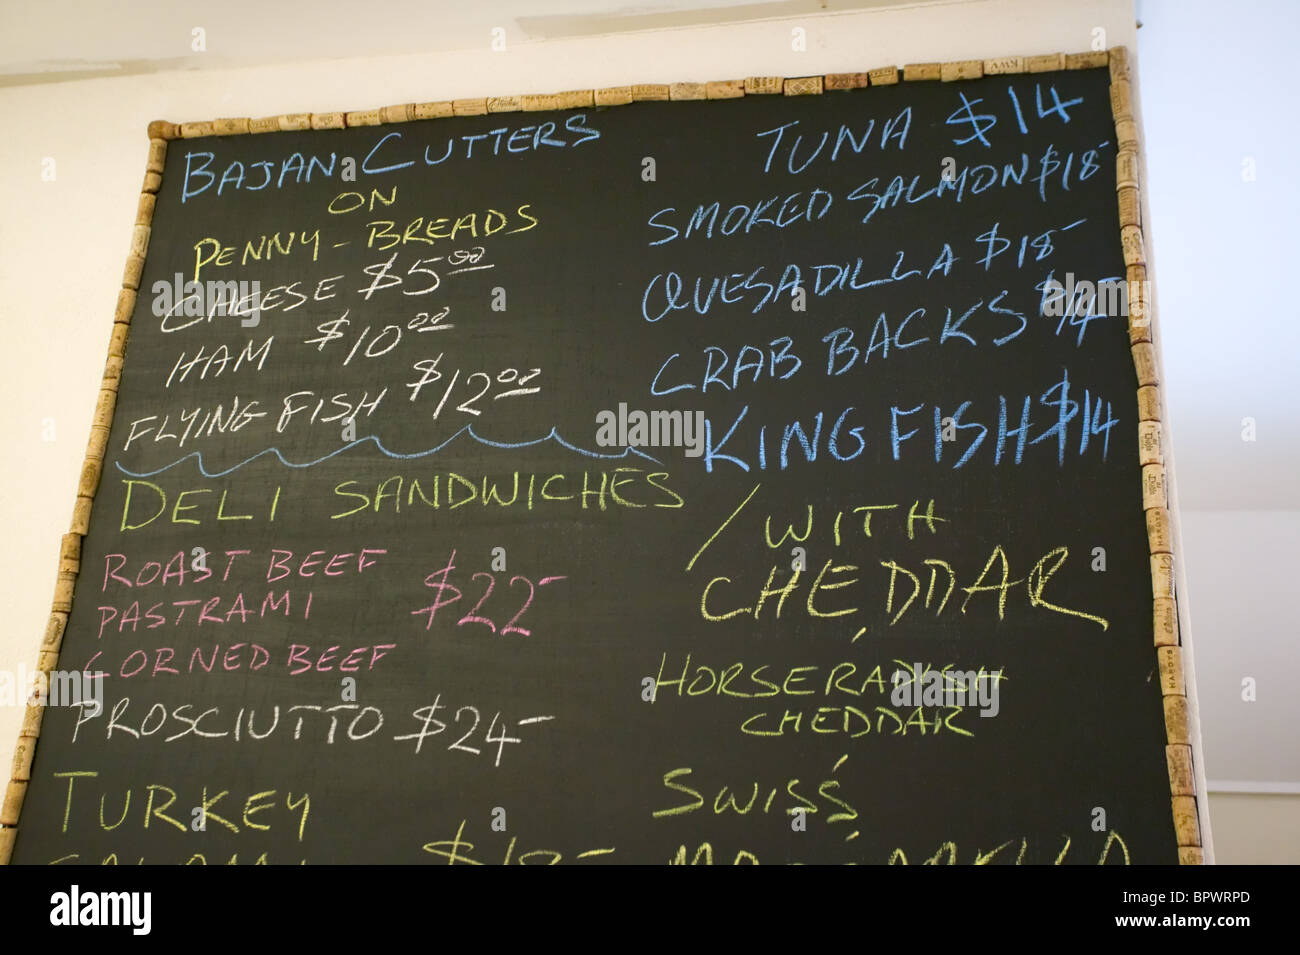 BAJAN CUTTERS
ON
PENNY-BREADS
CHEESE $5.00
HAM $10.00
FLYING FISH $12.00
DELI SANDWICHES
ROAST BEEF
PASTRAMI $22-
CORNED BEEF
PROSCIUTTO $24-
TURKEY
SALAMI $18-
TUNA $14
SMOKED SALMON $18-
QUESADILLA $18-
CRAB BACKS $14-
KING FISH $14
/ WITH
CHEDDAR
HORSERADISH
CHEDDAR
SWISS
alamy
Image ID: BPWRPD
www.alamy.com